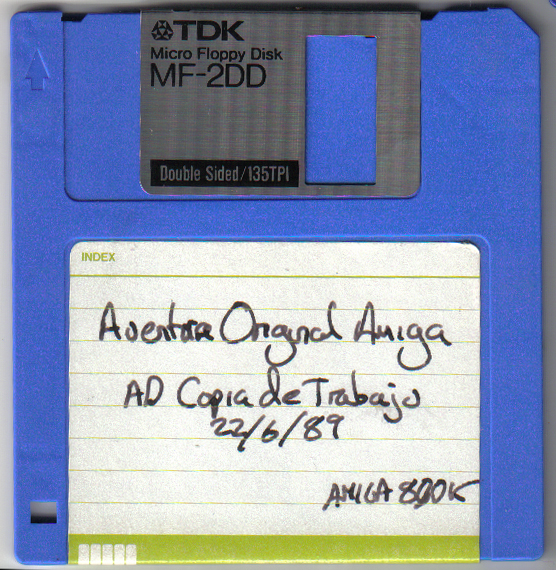 TDK
Micro Floppy Disk
MF-2DD
Double Sided/135TPI
INDEX
Aventura Original Amiga
AD Copia de Trabajo
22/6/89
AMIGA 800K